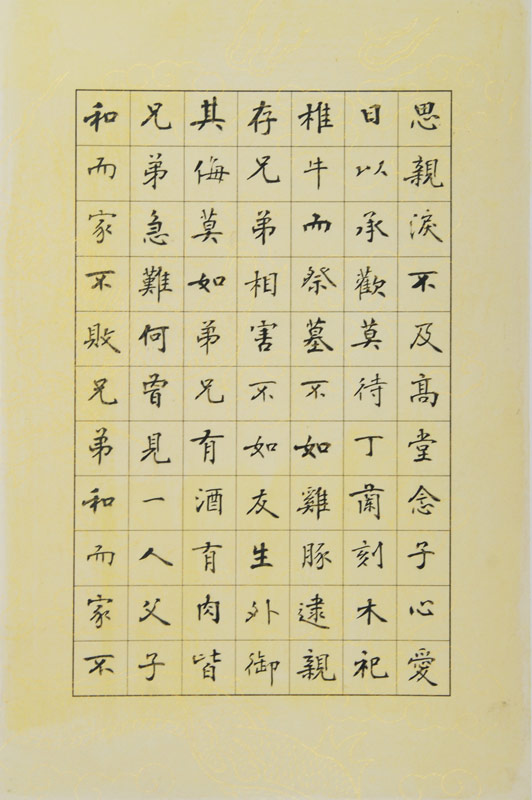 思親淚不及高堂念子心愛
日以承歡莫待丁蘭刻木祀
椎牛而祭墓不如雞豚逮親
存兄弟相害不如友生外御
其侮莫如弟兄有酒有肉皆
兄弟急難何曾見一人父子
和而家不敗兄弟和而家不